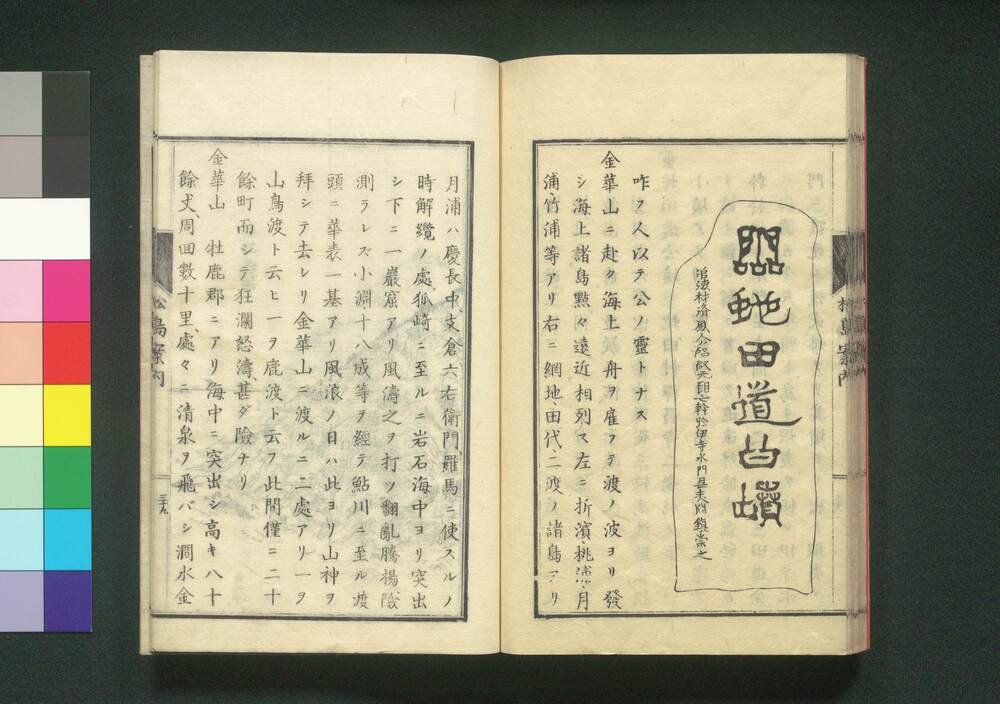 蛇田道公墳
伊寺水門
咋ヲ人以テ公ノ靈トナス
金華山ニ赴ク海上舟ヲ雇ヲテ渡ノ波ヨリ發
シ海上諸島點々遠近相列ス左ニ折濱、桃浦、月
浦、竹浦等アリ右ニ網地、田代、二渡ノ諸島アリ
松島案内
月浦ハ慶長中支倉六右衛門、羅馬ニ使スルノ
時解纜ノ處、狐崎ニ至ルニ岩石海中ヨリ突出
シ下ニ一巖窟アリ風濤之ヲ打ツ翻亂騰揚、險
測ラレズ小淵十八成等ヲ經テ鮎川ニ至ル渡
頭ニ華表一基アリ風浪ノ日ハ此ヨリ山神ヲ
拜シテ去レリ金華山ニ渡ルニ二處アリ一ヲ
山鳥渡ト云ヒ一ヲ鹿渡ト云フ此間僅ニ二十
餘町而シテ狂瀾怒濤、甚ダ險ナリ
金華山 牡鹿郡ニアリ海中ニ突出シ高キ八十
餘丈、周回數十里、處々ニ清泉ヲ飛バシ澗水金
松島案内